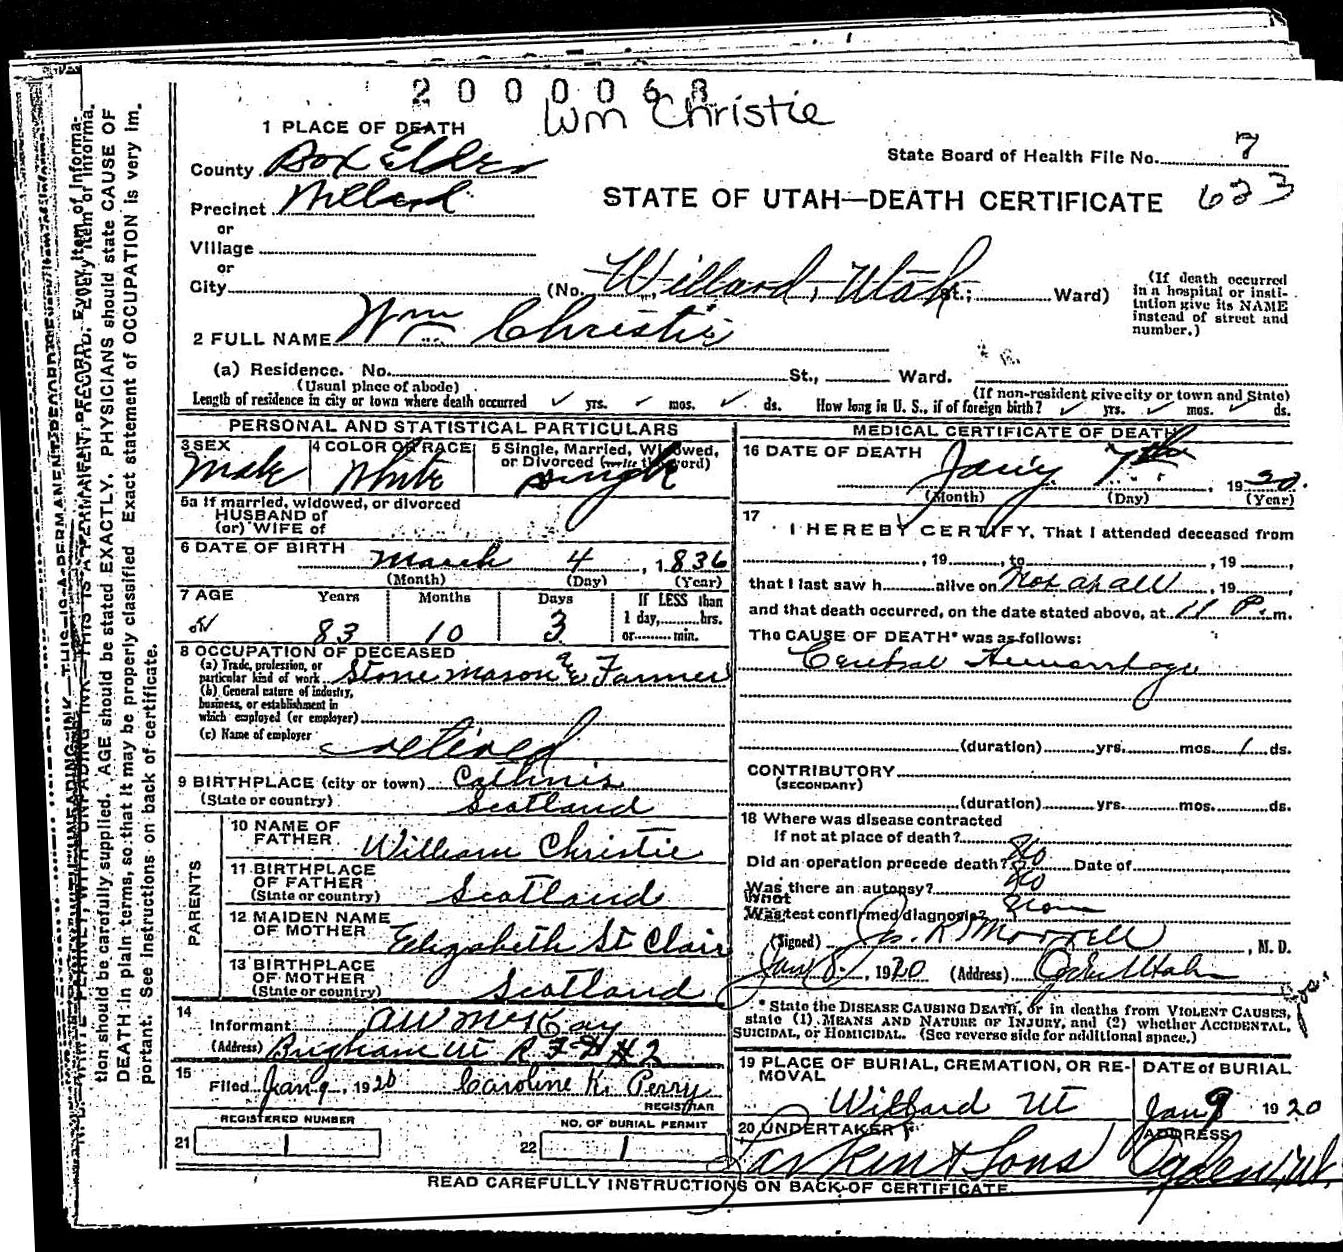 2000068
Wm Christie
1 PLACE OF DEATH
County Box Elder
State Board of Health File No. 7
Precinct Willard
STATE OF UTAH—DEATH CERTIFICATE 623
or
Village
or
City (No. Willard, Utah St.; Ward)
(If death occurred in a hospital or institution give its NAME instead of street and number.)
2 FULL NAME Wm Christie
(a) Residence. No. St., Ward.
(Usual place of abode) (If non-resident give city or town and State)
Length of residence in city or town where death occurred yrs. mos. ds. How long in U. S., if of foreign birth? yrs. mos. ds.
PERSONAL AND STATISTICAL PARTICULARS
3 SEX Male
4 COLOR OR RACE White
5 Single, Married, Widowed, or Divorced (write the word) Single
5a If married, widowed, or divorced
HUSBAND of
(or) WIFE of
6 DATE OF BIRTH March 4, 1836
(Month) (Day) (Year)
7 AGE Years Months Days If LESS than
1 day, hrs.
83 10 3 or min.
8 OCCUPATION OF DECEASED
(a) Trade, profession, or
particular kind of work Stone Mason & Farmer
(b) General nature of industry,
business, or establishment in
which employed (or employer)
(c) Name of employer
retired
9 BIRTHPLACE (city or town)
(State or country) Scotland
PARENTS
10 NAME OF FATHER William Christie
11 BIRTHPLACE OF FATHER
(State or country) Scotland
12 MAIDEN NAME OF MOTHER Elizabeth St Clair
13 BIRTHPLACE OF MOTHER
(State or country) Scotland
14
Informant
(Address) Brigham Ut R F D #2
15
Filed Jan 9, 1920 Caroline K. Perry
REGISTRAR
REGISTERED NUMBER NO. OF BURIAL PERMIT
21 22
MEDICAL CERTIFICATE OF DEATH
16 DATE OF DEATH
7th, 1920.
(Month) (Day) (Year)
17
I HEREBY CERTIFY, That I attended deceased from
, 19 , to , 19 ,
that I last saw h alive on Not at all, 19 ,
and that death occurred, on the date stated above, at 11 P. m.
The CAUSE OF DEATH* was as follows:
Hemorrhage
(duration) yrs. mos. 1 ds.
CONTRIBUTORY
(SECONDARY)
(duration) yrs. mos. ds.
18 Where was disease contracted
If not at place of death?
Did an operation precede death? No Date of
Was there an autopsy? No
What test confirmed diagnosis?
(Signed) Jos. R Morrell, M. D.
Jany 8, 1920 (Address) Ogden Utah
* State the DISEASE CAUSING DEATH, or in deaths from VIOLENT CAUSES,
state (1) MEANS AND NATURE OF INJURY, and (2) whether ACCIDENTAL,
SUICIDAL, or HOMICIDAL. (See reverse side for additional space.)
19 PLACE OF BURIAL, CREMATION, OR REMOVAL DATE OF BURIAL
Willard Ut Jan 9 1920
20 UNDERTAKER ADDRESS
Larkin & Sons Ogden, Ut.
READ CAREFULLY INSTRUCTIONS ON BACK OF CERTIFICATE
tion should be carefully supplied. AGE should be stated EXACTLY. PHYSICIANS should state CAUSE OF
DEATH in plain terms, so that it may be properly classified Exact statement of OCCUPATION is very im-
portant. See instructions on back of certificate.